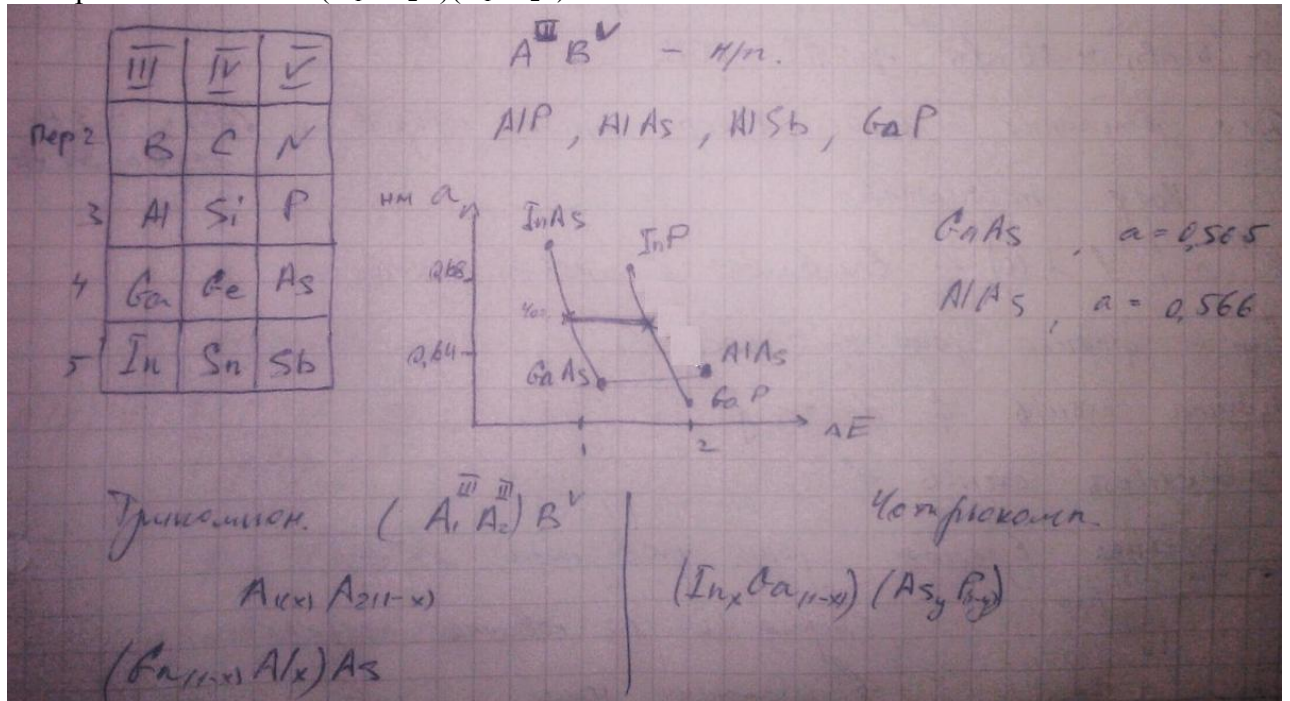 III IV V
Пер 2 B C N
3 Al Si P
4 Ga Ge As
5 In Sn Sb
A^III B^V – п/п.
AlP, AlAs, AlSb, GaP
нм a
InAs
InP
0,68
0,64
GaAs
AlAs
GaP
1
2
ΔE
GaAs, a = 0,565
AlAs, a = 0,566
Трикомпон. (A₁^III A₂^III) B^V
A₁(x) A₂(1-x)
(Ga(1-x) Al x) As
Четрёхкомп.
(In x Ga (1-x)) (As y P(1-y))